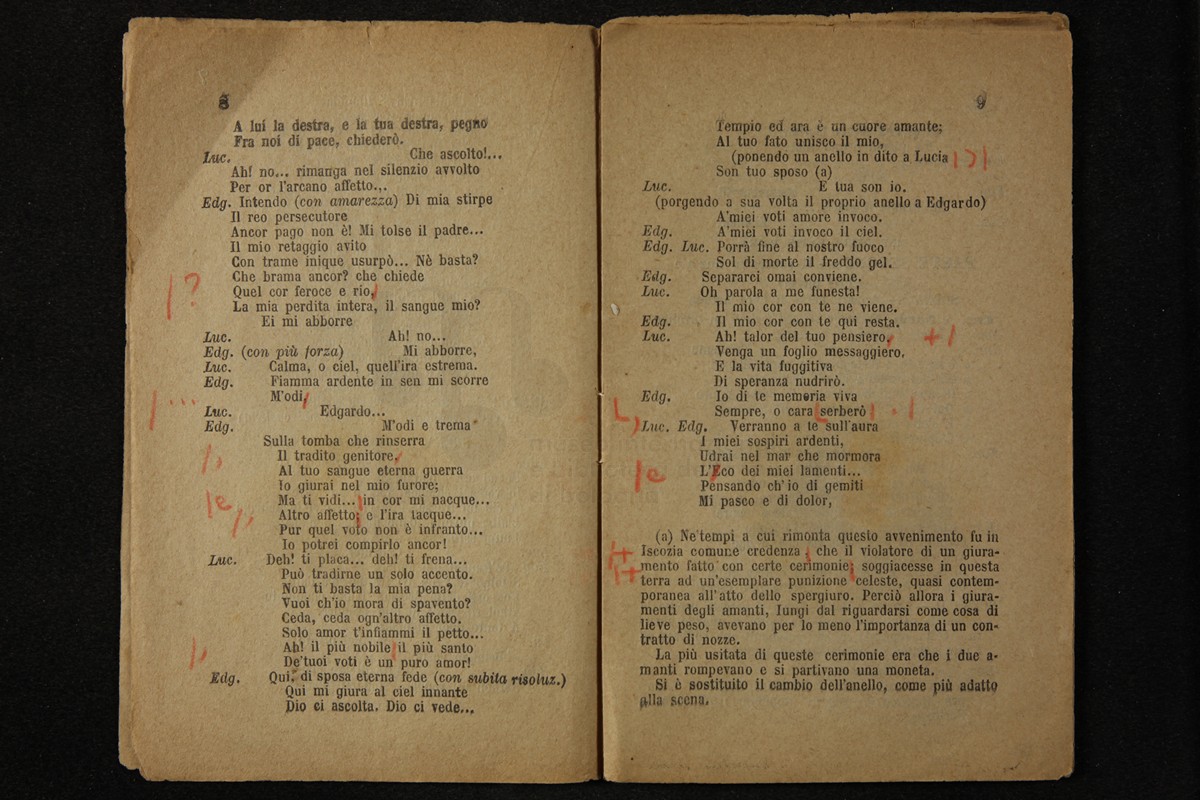 8
A lui la destra, e la tua destra, pegno
Fra noi di pace, chiederò.
Luc. Che ascolto!...
Ah! no... rimanga nel silenzio avvolto
Per or l'arcano affetto...
Edg. Intendo (con amarezza) Di mia stirpe
Il reo persecutore
Ancor pago non è! Mi tolse il padre...
Il mio retaggio avito
Con trame inique usurpò... Nè basta?
Che brama ancor? che chiede
Quel cor feroce e rio,
La mia perdita intera, il sangue mio?
Ei mi abborre
Luc. Ah! no...
Edg. (con più forza) Mi abborre,
Luc. Calma, o ciel, quell'ira estrema.
Edg. Fiamma ardente in sen mi scorre
M'odi,
Luc. Edgardo...
Edg. M'odi e trema
Sulla tomba che rinserra
Il tradito genitore,
Al tuo sangue eterna guerra
Io giurai nel mio furore;
Ma ti vidi... in cor mi nacque...
Altro affetto; e l'ira tacque...
Pur quel voto non è infranto...
Io potrei compirlo ancor!
Luc. Deh! ti placa... deh! ti frena...
Può tradirne un solo accento.
Non ti basta la mia pena?
Vuoi ch'io mora di spavento?
Ceda, ceda ogn'altro affetto.
Solo amor t'infiammi il petto...
Ah! il più nobile il più santo
De'tuoi voti è un puro amor!
Edg. Qui, di sposa eterna fede (con subita risoluz.)
Qui mi giura al ciel innante
Dio ci ascolta. Dio ci vede...
9
Tempio ed ara è un cuore amante;
Al tuo fato unisco il mio,
(ponendo un anello in dito a Lucia
Son tuo sposo (a)
Luc. E tua son io.
(porgendo a sua volta il proprio anello a Edgardo)
A'miei voti amore invoco.
Edg. A'miei voti invoco il ciel.
Edg. Luc. Porrà fine al nostro fuoco
Sol di morte il freddo gel.
Edg. Separarci omai conviene.
Luc. Oh parola a me funesta!
Il mio cor con te ne viene.
Edg. Il mio cor con te qui resta.
Luc. Ah! talor del tuo pensiero,
Venga un foglio messaggiero,
E la vita fuggitiva
Di speranza nudrirò.
Edg. Io di te memoria viva
Sempre, o cara serberò
Luc. Edg. Verranno a te sull'aura
I miei sospiri ardenti,
Udrai nel mar che mormora
L'Eco dei miei lamenti...
Pensando ch'io di gemiti
Mi pasco e di dolor,
(a) Ne'tempi a cui rimonta questo avvenimento fu in
Iscozia comune credenza , che il violatore di un giura-
mento fatto con certe cerimonie; soggiacesse in questa
terra ad un'esemplare punizione celeste, quasi contem-
poranea all'atto dello spergiuro. Perciò allora i giura-
menti degli amanti, lungi dal riguardarsi come cosa di
lieve peso, avevano per lo meno l'importanza di un con-
tratto di nozze.
La più usitata di queste cerimonie era che i due a-
manti rompevano e si partivano una moneta.
Si è sostituito il cambio dell'anello, come più adatto
alla scena.